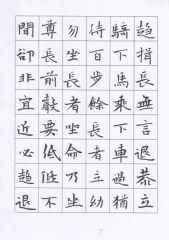 趨揖長無言退恭立
騎下馬乘下車過猶
待百步餘長者立幼
勿坐長者坐命乃坐
尊長前聲要低低不
聞卻非宜近必趨退
7